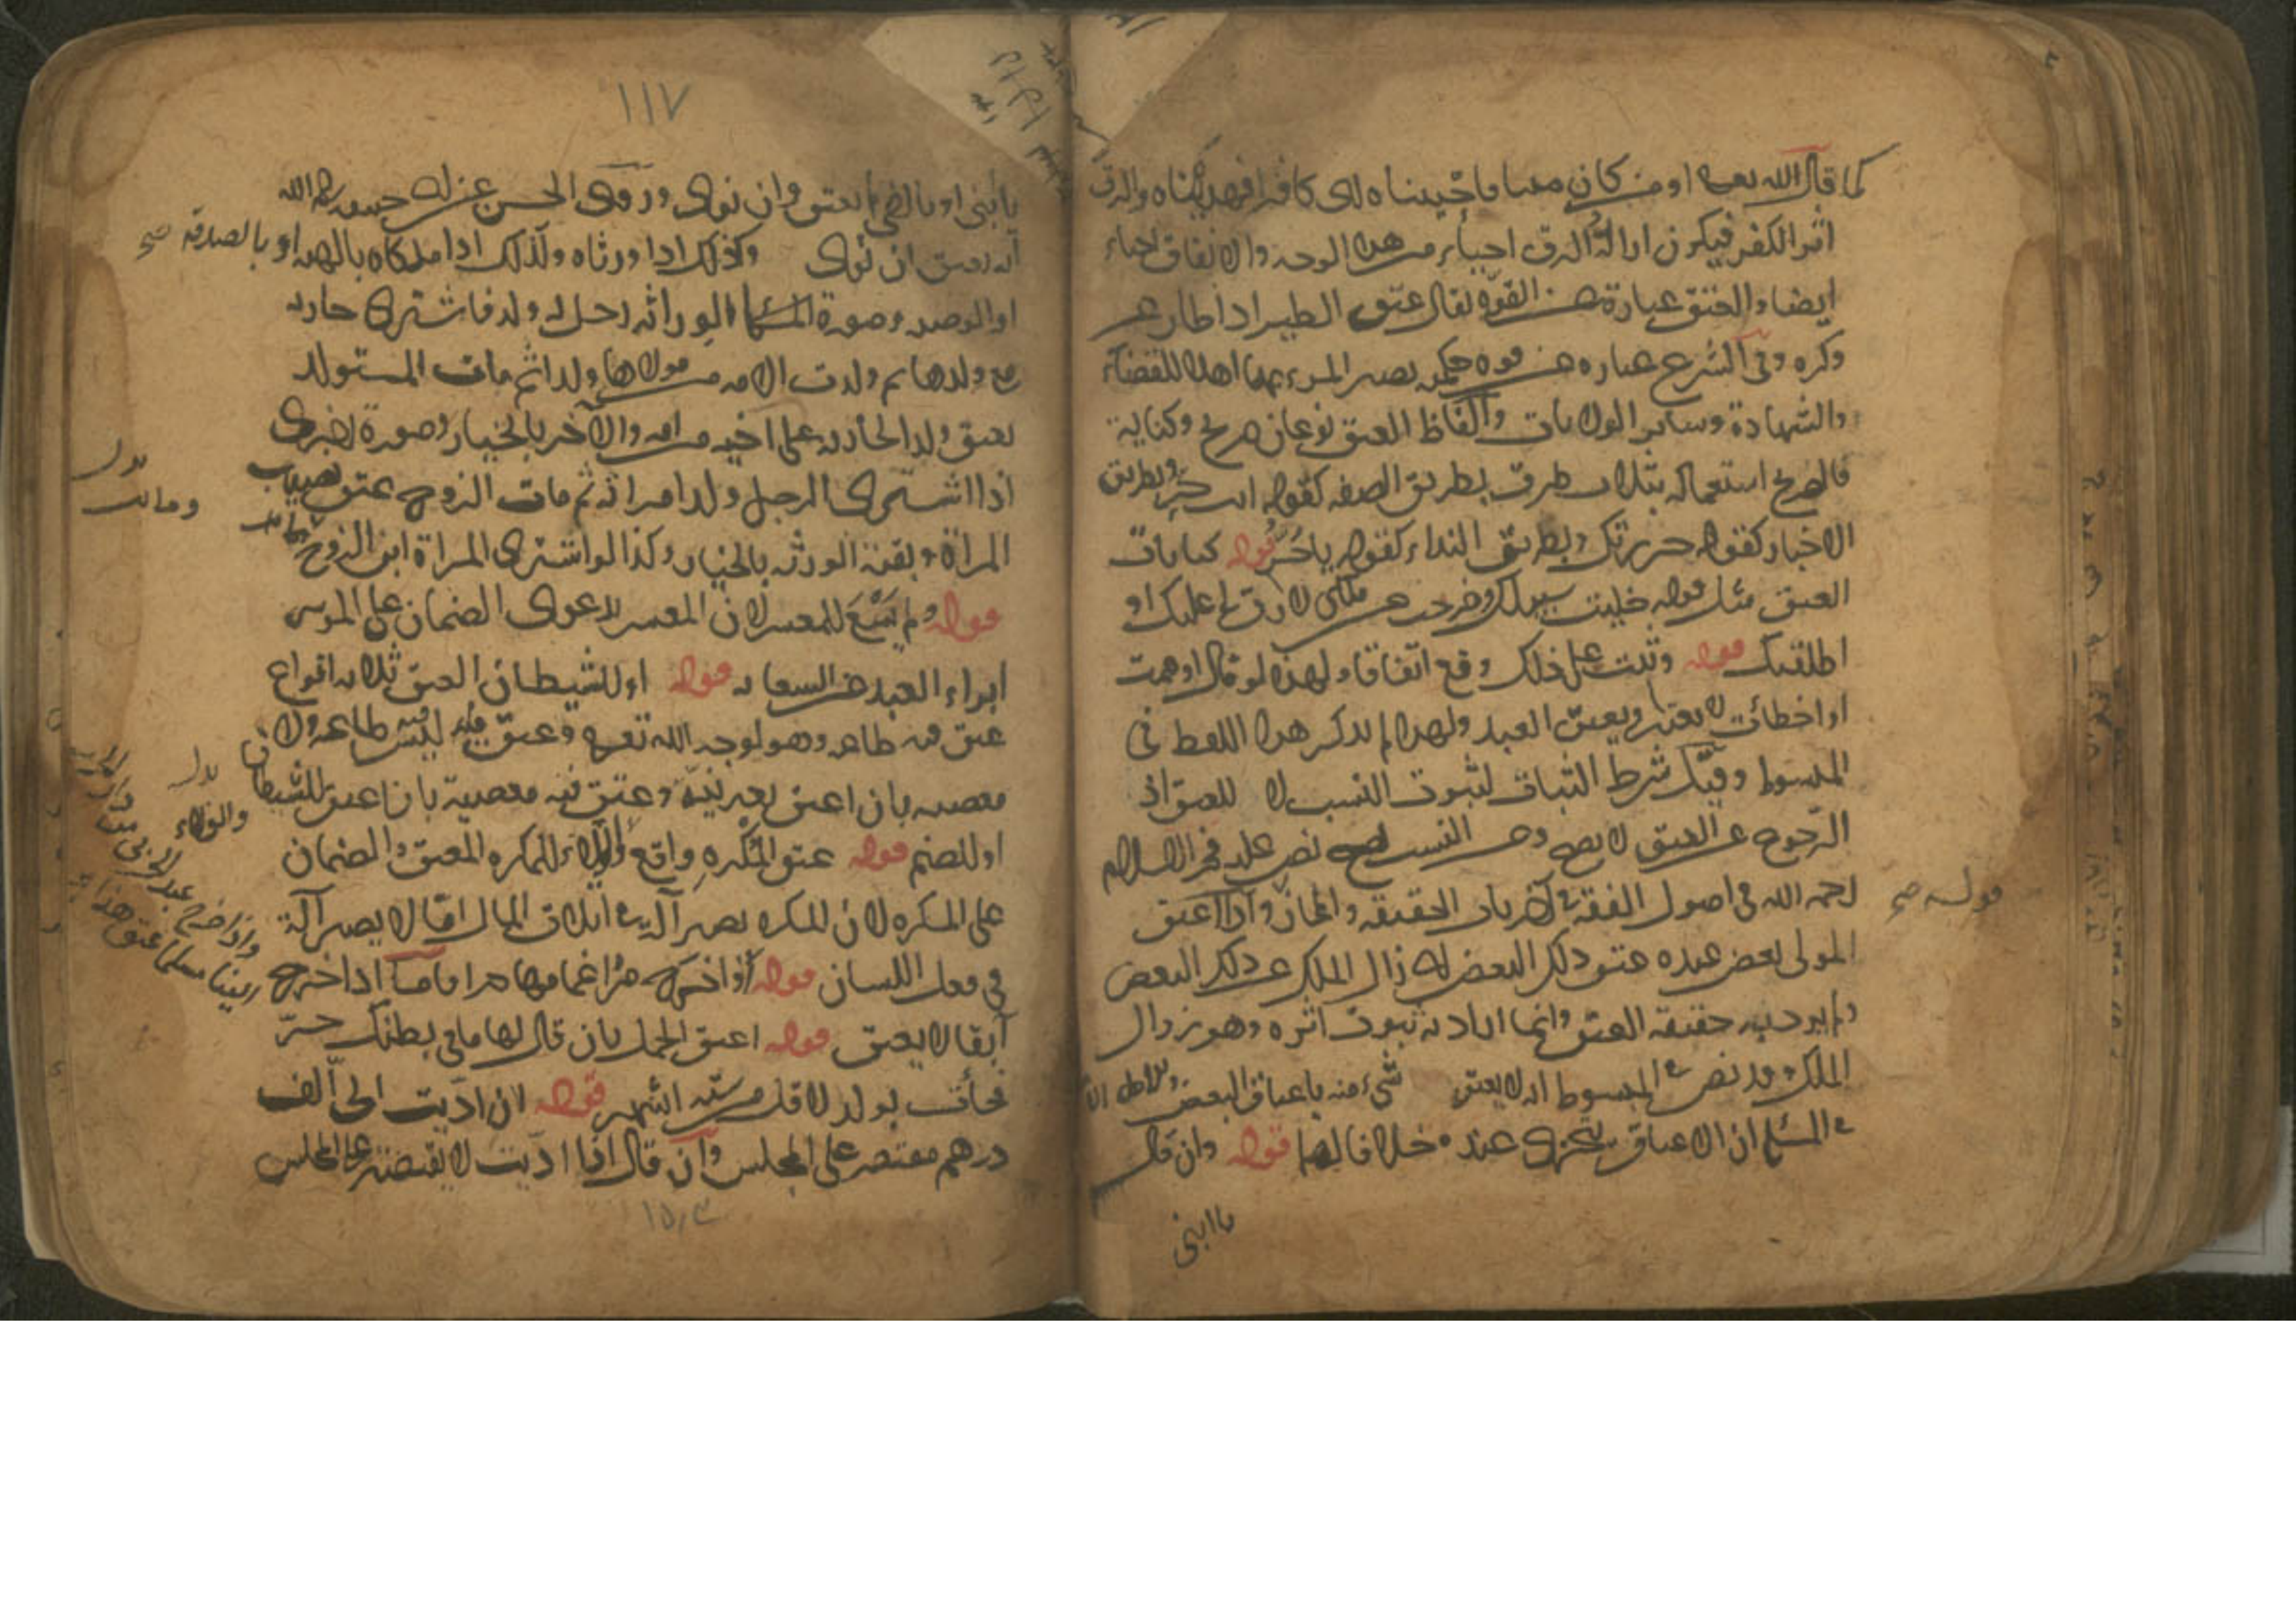 كما قال الله تعالى او من كان ميتا فاحييناه اى كافرا فهديناه والرق
اثر الكفر فيكون ازالة الرق احياء من هذا الوجه والانفاق احياء
ايضا والعتق عبارة عن القوة يقال عتق الطير اذا طار عن
وكره وفى الشرع عباره عن قوه حكميه يصير المرء بها اهلا للقضاء
والشهادة وساير الولايات والفاظ العتق نوعان صريح وكناية
فالصريح استعماله بثلاث طرق بطريق الصفه كقوله انت حر وبطريق
الاخبار كقوله حررتك وبطريق النداء كقوله يا حر قوله كنايات
العتق مثل قوله خليت سبيلك وخرجت عن ملكى لا رق لى عليك او
اطلقتك قوله وثبت على ذلك وقع اتفاقا ولهذا لو قال اوهمت
او اخطات لا يعتبر ويعتق العبد ولهذا لم يذكر هذا اللفظ فى
المبسوط وقيل شرط الثبات لثبوت النسب لا للعتق اذ
الرجوع عن العتق لا يصح وعن النسب يصح نص عليه فخر الاسلام
رحمه الله فى اصول الفقه فى اخر باب الحقيقه والمجاز واذا اعتق
قوله صح
المولى بعض عبده عتق ذلك البعض اى زال الملك عن ذلك البعض
ولم يرد به حقيقة العتق وانما اراد به ثبوت اثره وهو زوال
الملك وقد نص فى المبسوط انه لا يعتق شئ منه باعتاق البعض
فى المسئلة ان الاعتاق يتجزى عنده خلافا لهما قوله وان قال
يا ابنى
١١٧
يا ابنى او يا اخى لم يعتق وان نوى وروى الحسن عن ابى حنيفه رحمه الله
انه يعتق ان نوى وكذلك اذا ورثاه وكذلك اذا ملكاه بالهبه او بالصدقه صح
او الوصيه وصورة المسئلة الوراثه رجل له ولد فاشترى جاريه
مع ولدها ثم ولدت الامه من مولاها ولدا ثم مات المستولد
يعتق ولد الجاريه على اخيه من امه والاخر بالخيار وصورة اخرى
اذا اشترى الرجل ولد امراته ثم مات الزوج عتق نصيب
بدل
ومات
المراة وبقية الورثه بالخيار وكذا لو اشترى المراة ابن الزوج
قوله ولم يسع للمعسر لان المعسر لدعوى الضمان على الموسر
ابراء العبد عن السعايه قوله او للشيطان العتق ثلاثه انواع
عتق فيه طاعه وهو لوجه الله تعالى وعتق فيه ليس طاعه ولا
معصيه بان اعتق بغير نية وعتق فيه معصية بان اعتق للشيطان
بدل
والولاء
او للصنم قوله عتق المكره واقع والولاء للمكره المعتق والضمان
على المكره لان المكره يصير آلة فى اتلاف المال اما لا يصير آلة
فى فعل اللسان قوله اذا خرج مراغما مولاه اما اذا خرج
آبقا لا يعتق قوله اعتق الحمل بان قال لها ما فى بطنك حر
فجائت بولد لاقل من سته اشهر قوله ان اديت الى الف
درهم مقتصر على المجلس وان قال اذا اديت لا يقتصر على المجلس
واذا خرج عبد الحربى من دار الحرب
الينا مسلما عتق هذا
١٥٫٤